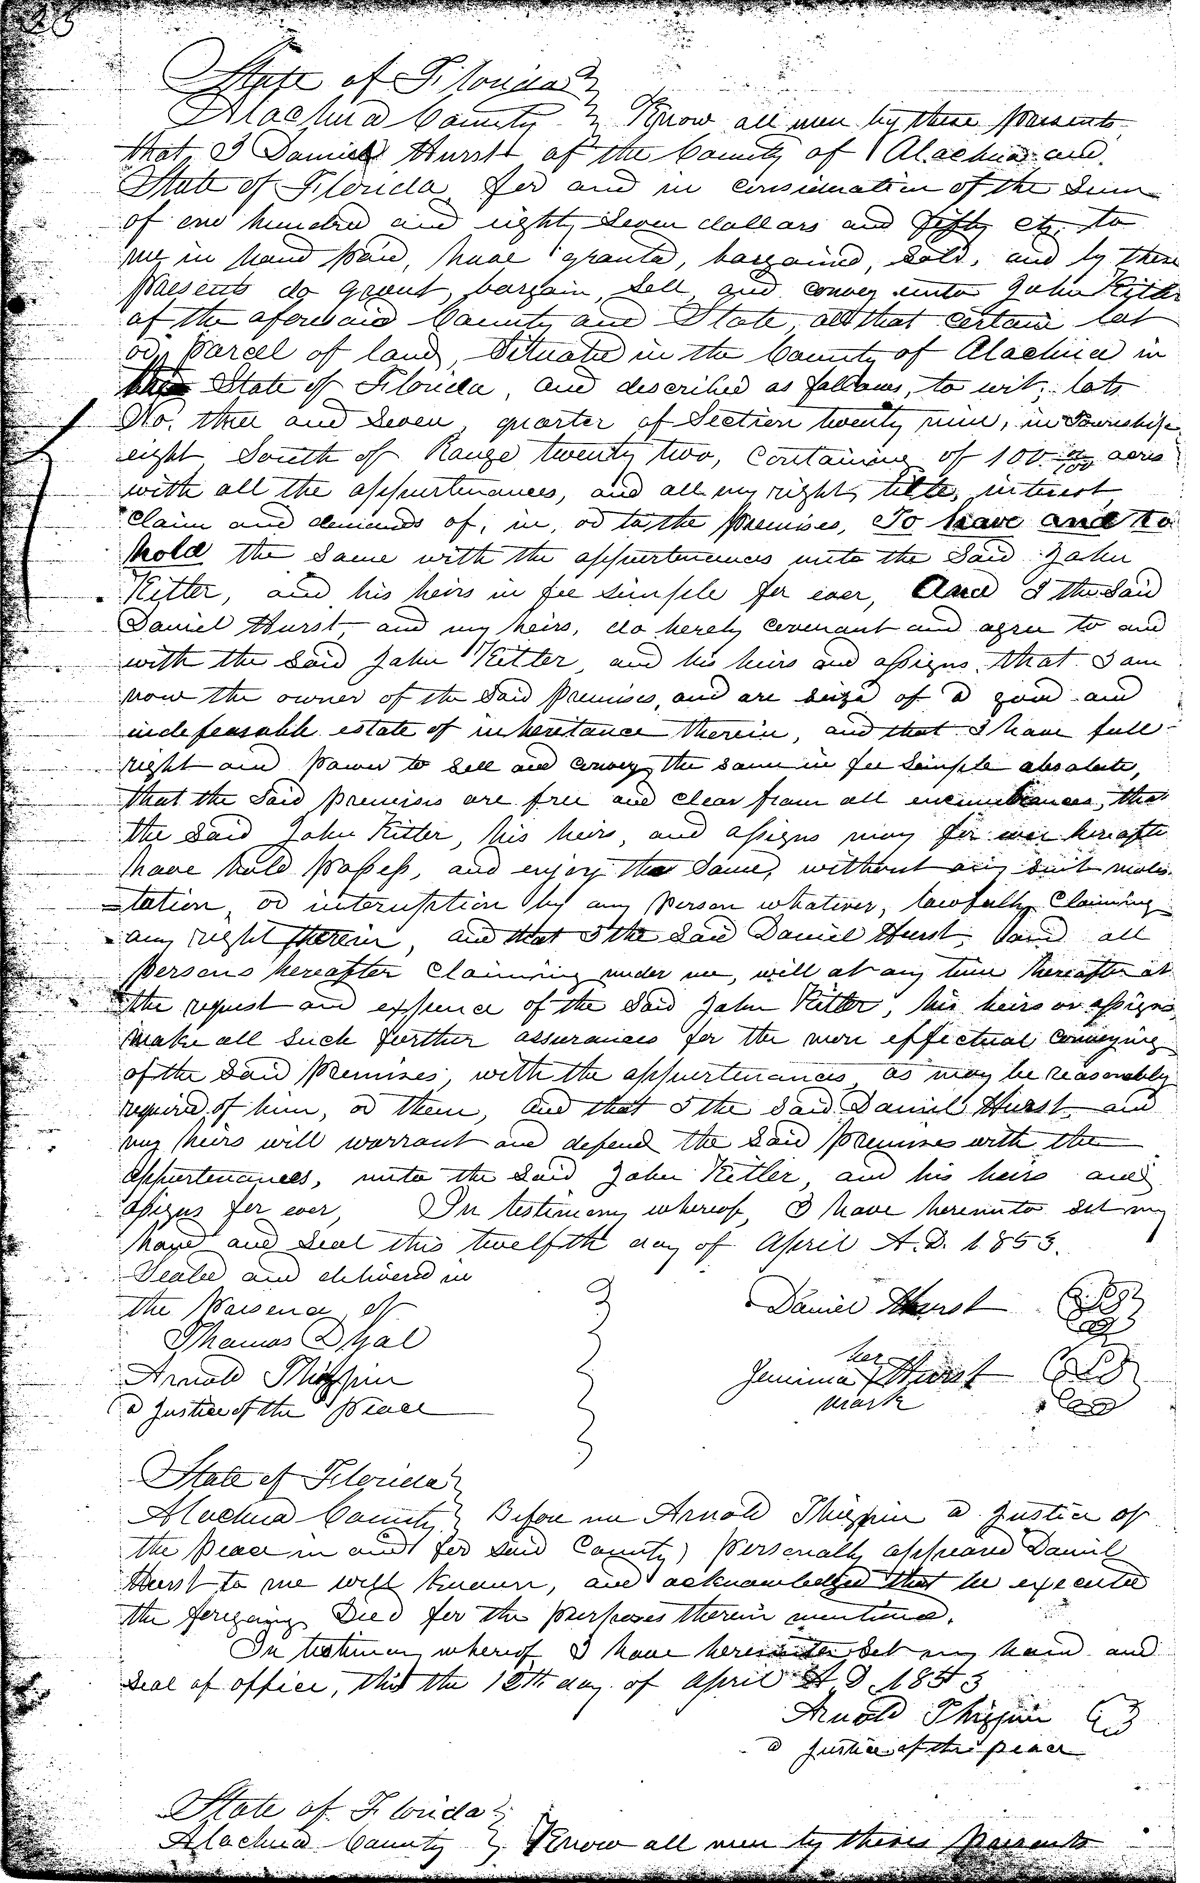 State of Florida
Alachua County } Know all men by these presents
that I Daniel Hurst of the County of Alachua and
State of Florida for and in consideration of the Sum
of one hundred and eighty Seven dollars and fifty cts, to
me in hand paid, have granted, bargained, Sold, and by these
presents do grant, bargain, Sell, and convey unto John Kitler
of the aforesaid County and State, all that certain lot
or parcel of land, Situated in the County of Alachua in
the State of Florida, and described as follows, to wit; lots
No. three and Seven, quarter of Section twenty nine, in Township
eight South of Range twenty two, Containing of 100 /100 acres
with all the appurtenances, and all my right, title, interest,
Claim and demands of, in, or to the premises, To have and to
hold the Same with the appurtenances unto the Said John
Kitler, and his heirs in fee simple for ever, And I the Said
Daniel Hurst, and my heirs, do hereby covenant and agree to and
with the Said John Kitler, and his heirs and assigns, that I am
now the owner of the Said premises, and are seized of a good and
indefeasable estate of inheritance therein, and that I have full
right and power to Sell and convey the same in fee Simple absolute,
that the Said premises are free and clear from all encumbrances, that
the Said John Kitler, his heirs, and assigns may for ever hereafter
have hold possess, and enjoy the Same, without any suit moles-
-tation, or interuption by any person whatever, lawfully Claiming
any right therein, and that I the Said Daniel Hurst, and all
persons hereafter Claiming under me, will at any time hereafter at
the request and expence of the Said John Kitler, his heirs or assigns,
make all Such further assurances for the more effectual conveying
of the Said premises, with the appurtenances, as may be reasonably
required of him, or them, and that I the Said Daniel Hurst and
my heirs will warrant and defend the Said premises with the
appurtenances, unto the Said John Kitler, and his heirs and
assigns for ever, In testimony whereof, I have hereunto Set my
hand and Seal this twelfth day of April A.D. 1853.
Sealed and delivered in
the presence of Daniel Hurst
Thomas Dyal
her
Arnold Thigpin Jemima X Hurst
a Justice of the Peace mark
State of Florida
Alachua County } Before me Arnold Thigpin a Justice of
the Peace in and for said County, personally appeared Daniel
Hurst to me well known, and acknowledged that he executed
the foregoing Deed for the purposes therein mentioned.
In testimony whereof I have hereunto Set my hand and
Seal of office, this the 12th day of April A.D. 1853
Arnold Thigpin
a Justice of the peace
State of Florida
Alachua County } Know all men by theses presents